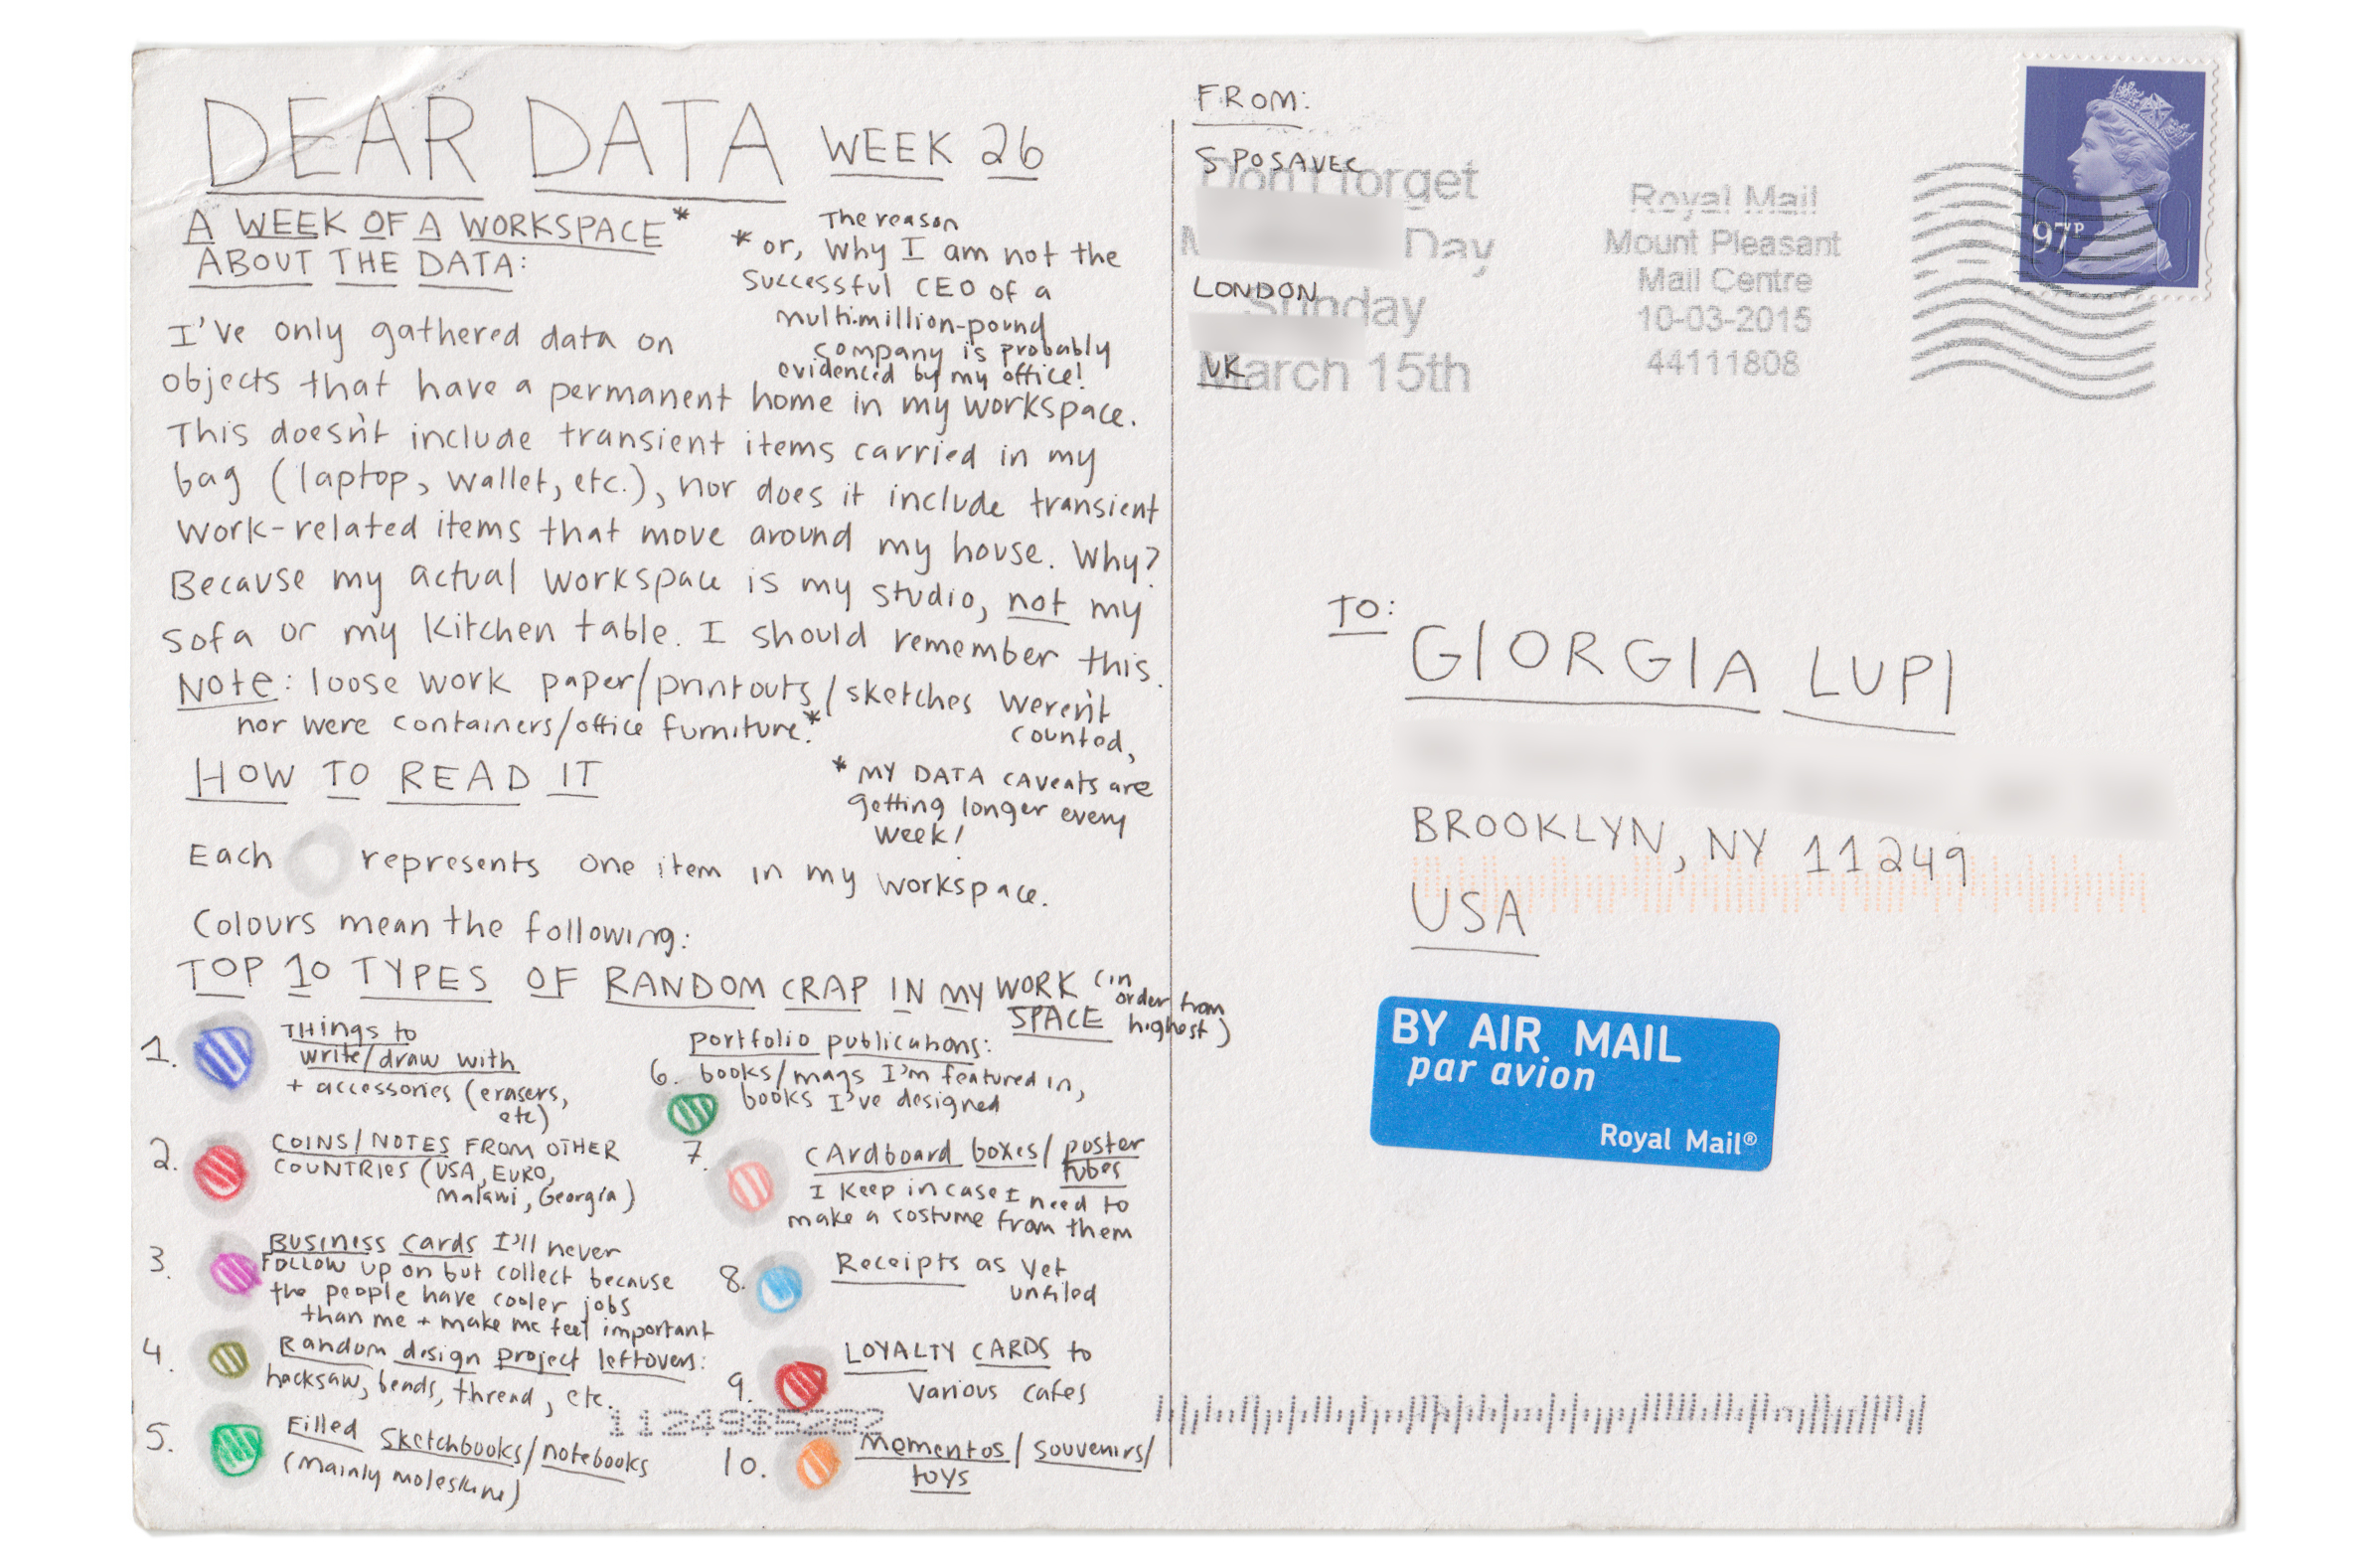 DEAR DATA WEEK 26
A WEEK OF A WORKSPACE*
ABOUT THE DATA:
*or, The reason why I am not the
successful CEO of a
multi-million-pound
company is probably
evidenced by my office!
I've only gathered data on
objects that have a permanent home in my workspace.
This doesn't include transient items carried in my
bag (laptop, wallet, etc.), nor does it include transient
work-related items that move around my house. Why?
Because my actual workspace is my studio, not my
sofa or my kitchen table. I should remember this.
Note: loose work paper/printouts/sketches weren't
counted,
nor were containers/office furniture.*
*MY DATA caveats are
getting longer every
week!
HOW TO READ IT
Each represents one item in my workspace.
Colours mean the following:
TOP 10 TYPES OF RANDOM CRAP IN MY WORK
SPACE (in order from highest)
1. THings to
write/draw with
+ accessories (erasers,
etc)
2. COINS/NOTES FROM OTHER
COUNTRIES (USA, EURO,
Malawi, Georgia)
3. BUSINESS cards I'll never
FOLLOW up on but collect because
the people have cooler jobs
than me + make me feel important
4. Random design project leftovers:
hacksaw, beads, thread, etc.
5. Filled sketchbooks/notebooks
(mainly moleskine)
6. portfolio publications:
books/mags I'm featured in,
books I've designed
7. CArdboard boxes/poster
tubes
I keep in case I need to
make a costume from them
8. Receipts as yet
unfiled
9. LOYALTY CARDS to
various cafes
10. Mementos/souvenirs/
toys
1124985282
FROM:
S POSAVEC
LONDON
UK
Don't forget
Day
Sunday
March 15th
Royal Mail
Mount Pleasant
Mail Centre
10-03-2015
44111808
97P
TO:
GIORGIA LUPI
BROOKLYN, NY 11249
USA
BY AIR MAIL
par avion
Royal Mail®